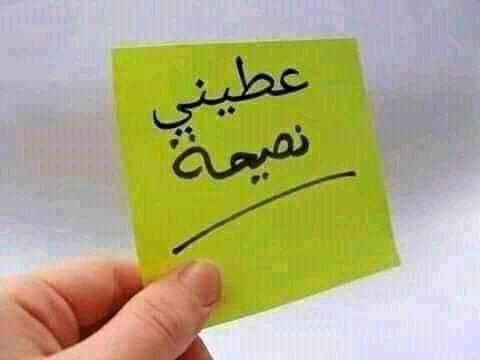 عطيني
نصيحة